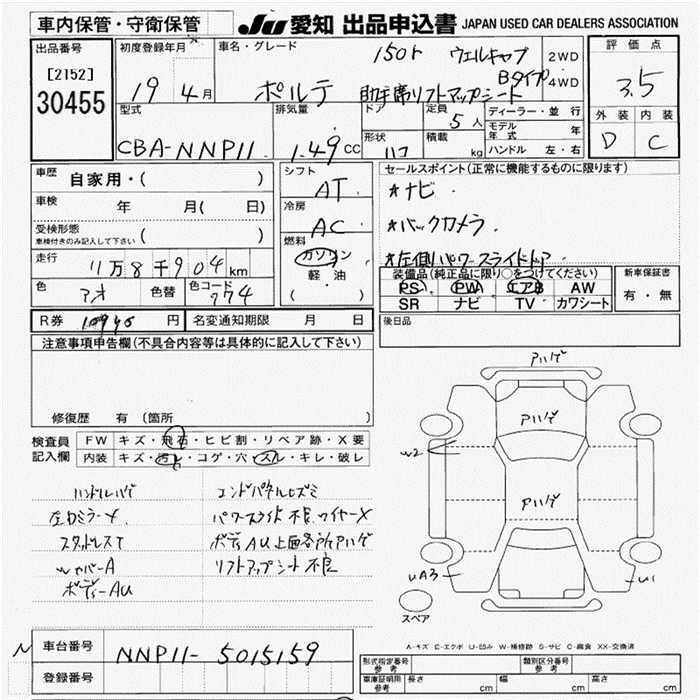 車内保管・守衛保管
JU 愛知 出品申込書 JAPAN USED CAR DEALERS ASSOCIATION
出品番号
[2152]
30455
初度登録年月
19 4月
車名・グレード
150r ウェルキャブ
Bタイプ
ポルテ 助手席リフトアップシート
2WD
4WD
評価点
3.5
外装 内装
D C
型式
CBA-NNP11
排気量
1.49cc
ドア
定員
5人
形状
ハコ
積載
kg
ディーラー・並行
モデル年式 年
ハンドル 左・右
車歴
自家用・( )
車検 年 月( 日)
受検形態
車検付きのみ記入して下さい ( )
走行
11万8千904km
色
アオ
色替
色コード
774
シフト
AT
冷房
AC
燃料
ガソリン
軽油
( )
セールスポイント(正常に機能するものに限ります)
*ナビ
*バックカメラ
*左側パワースライドドア
装備品(純正品に限り○をつけてください)
PS PW エアB AW
SR ナビ TV カワシート
新車保証書
有・無
R券 円
名変通知期限 月 日
後日品
注意事項申告欄(不具合内容等は具体的に記入して下さい)
修復歴 有(箇所 )
検査員記入欄
FW キズ・飛石・ヒビ割・リペア跡・X要
内装 キズ・汚レ・コゲ・穴・スレ・キレ・破レ
ハンドルハゲ エンドパネルヒズミ
左ドミラーキ パワースライド不良 ワイヤーX
スタッドレスT ボディAU上面各所アハゲ
リフトアップシート不良
ボディーAU
アハゲ
アハゲ
アハゲ
W2
UA3
U1
スペア
A-キズ E-エクボ U-凹み W-補修跡 S-サビ C-腐食 XX-交換済
車台番号
NNP11-5015159
登録番号
形式指定番号 参考
類別区分番号 参考
車庫証明用 参考
長さ cm
幅 cm
高さ cm